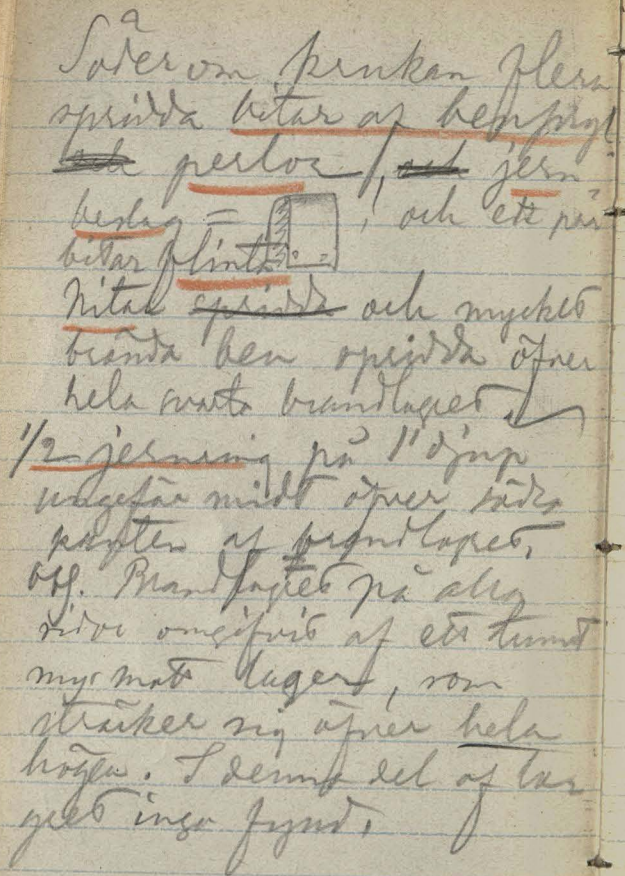 a
Söder om krukan flera
spridda bitar af benpryl
och perlor, och jern-
beslag = , och ett par
bitar flinta
Nitar spridda och mycket
brända ben spridda öfver
hela svarta brandlagret.
1/2 jernring på 1' djup
ungefär midt öfver södra
parten af brandlagret.
Brandlagret på alla
sidor omgifvet af ett tunnt
lager, som
sträcker sig öfver hela
högen. I denna del af lag
gret inga fynd.